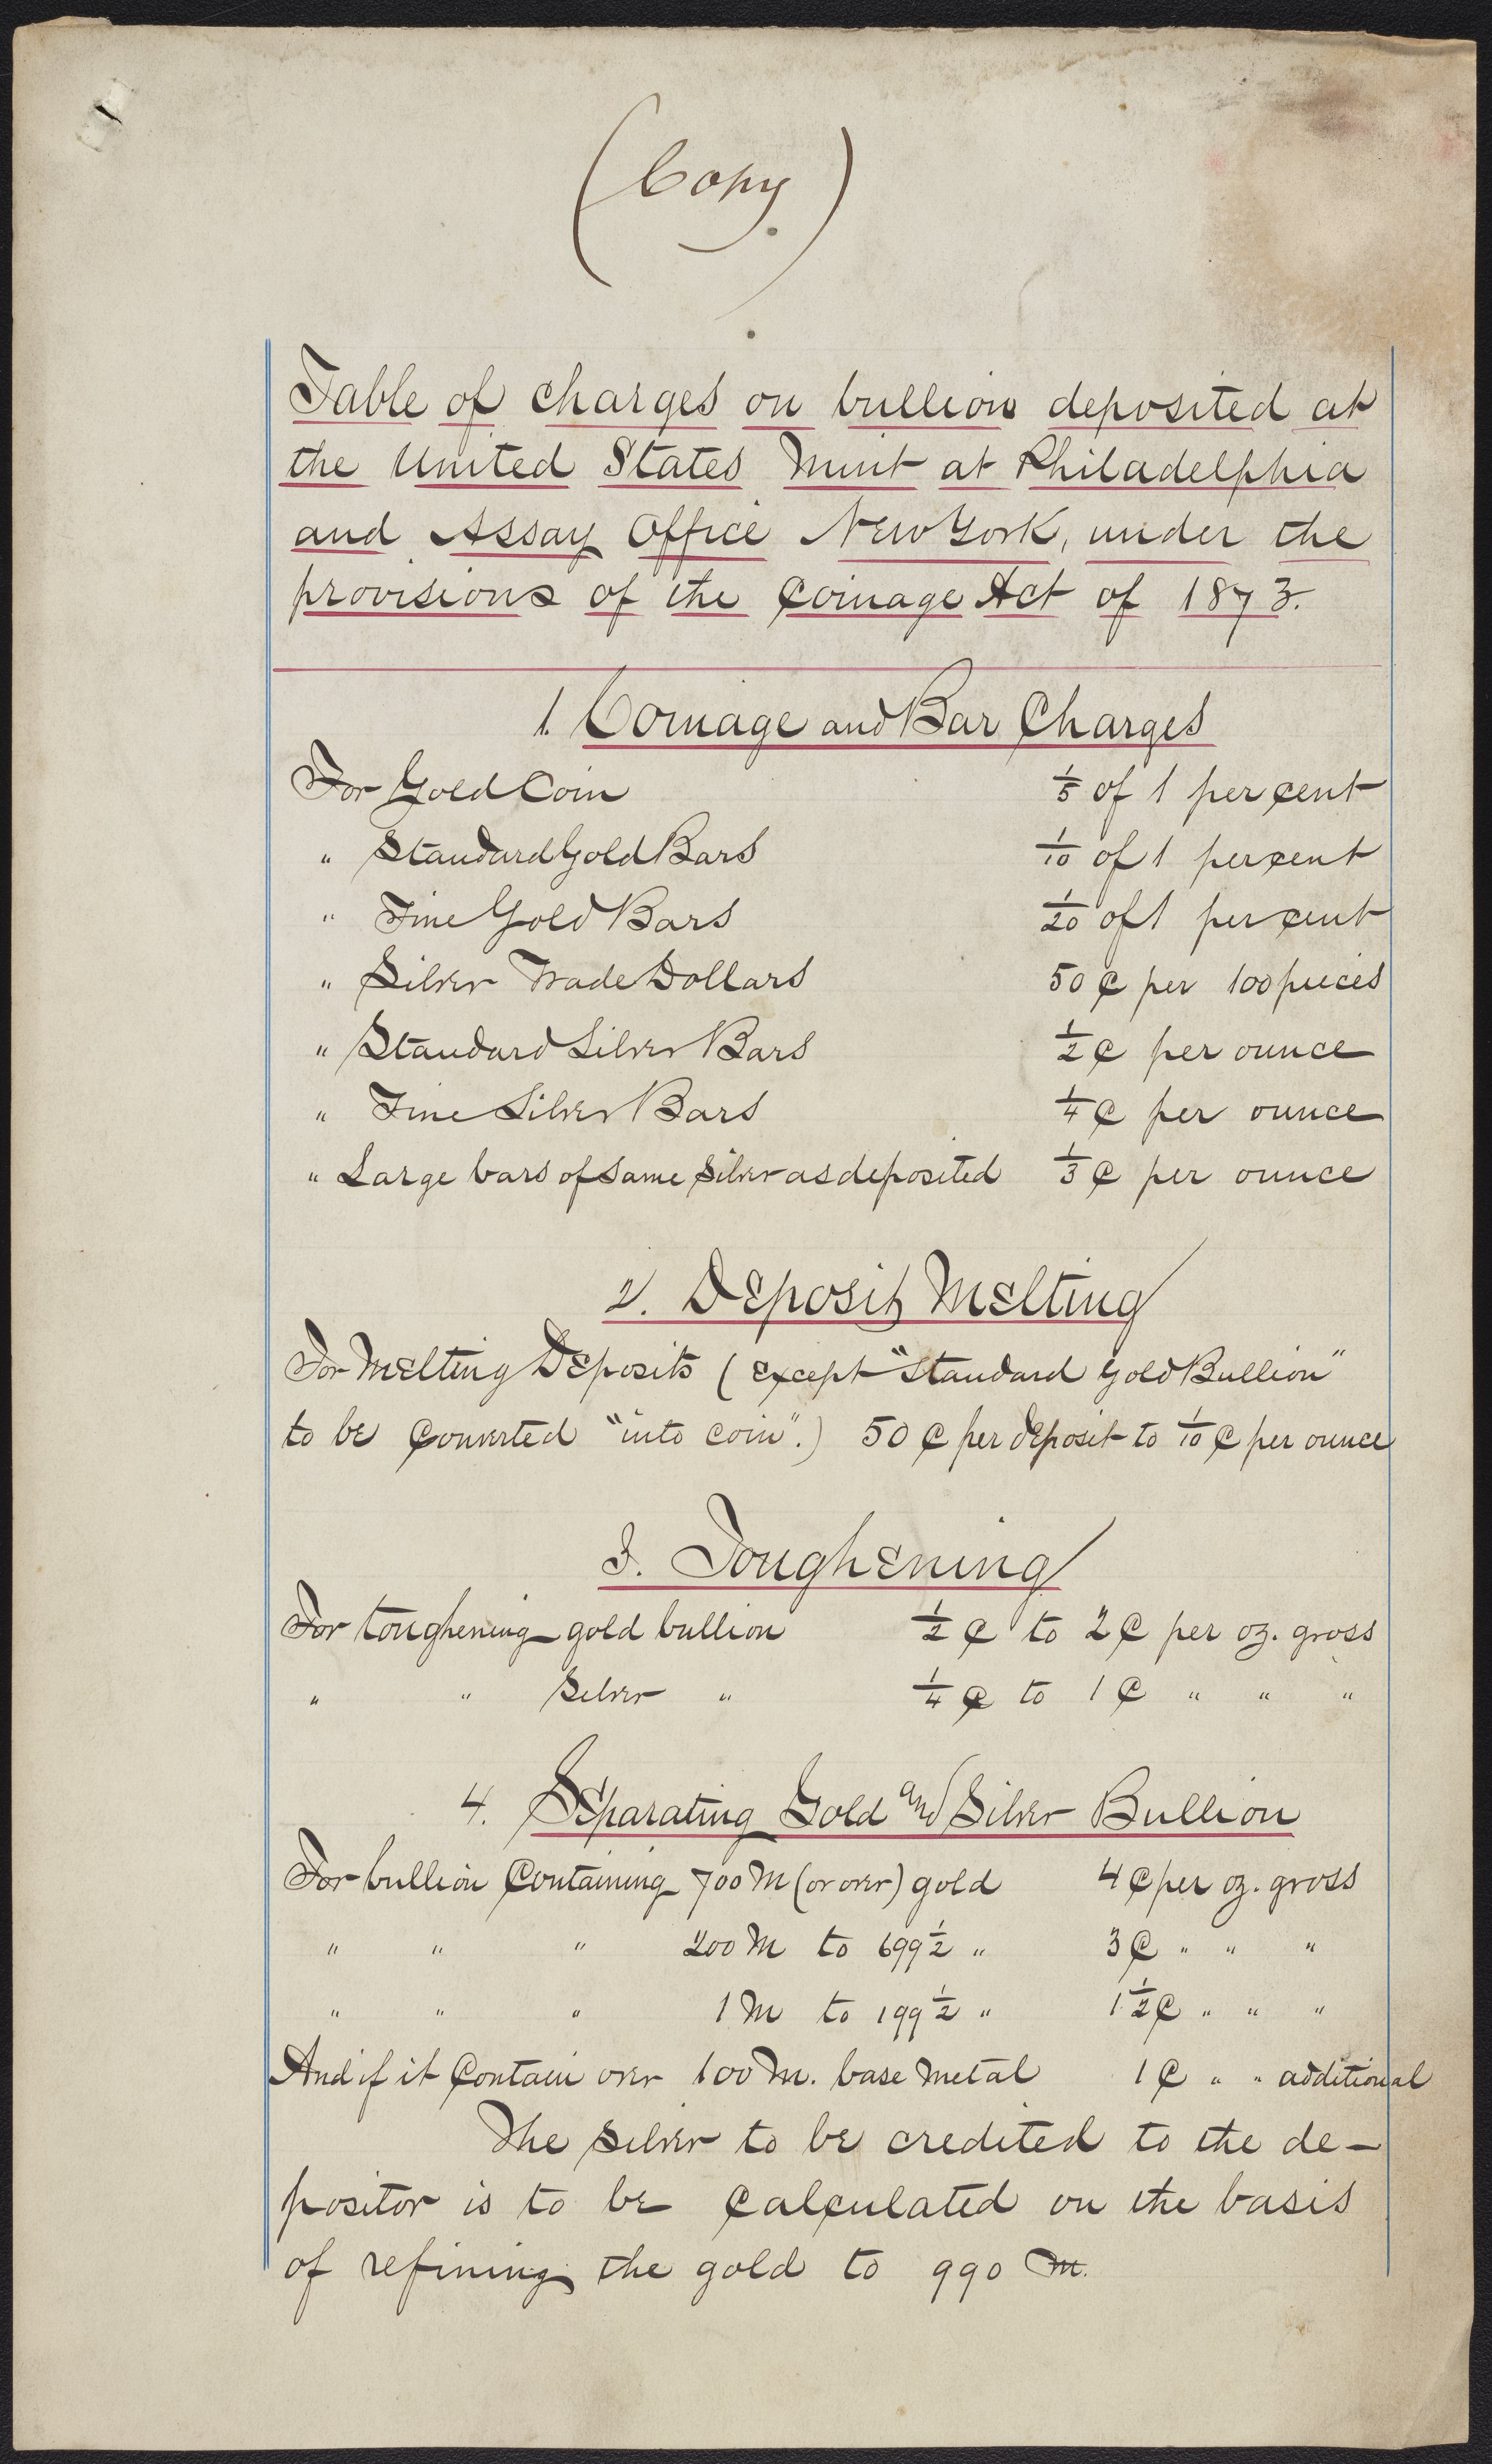 (Copy.)
Table of charges on bullion deposited at
the United States Mint at Philadelphia
and Assay Office New York, under the
provisions of the Coinage Act of 1873.
1. Coinage and Bar Charges
For Gold Coin 1/5 of 1 per cent
" Standard Gold Bars 1/10 of 1 per cent
" Fine Gold Bars 1/20 of 1 per cent
" Silver Trade Dollars 50 ¢ per 100 pieces
" Standard Silver Bars 1/2 ¢ per ounce
" Fine Silver Bars 1/4 ¢ per ounce
" Large bars of same silver as deposited 1/3 ¢ per ounce
2. Deposit Melting
For Melting Deposits (except "Standard Gold Bullion"
to be Converted "into coin".) 50 ¢ per deposit to 1/10 ¢ per ounce
3. Toughening
For toughening gold bullion 1/2 ¢ to 2 ¢ per oz. gross
" " Silver " 1/4 ¢ to 1 ¢ " " "
4. Separating Gold and Silver Bullion
For bullion Containing 700 M (or over) gold 4 ¢ per oz. gross
" " " 200 M to 699 1/2 " 3 ¢ " " "
" " " 1 M to 199 1/2 " 1 1/2 ¢ " " "
And if it Contain over 100 M. base metal 1 ¢ " " additional
The silver to be credited to the de-
positor is to be calculated on the basis
of refining the gold to 990 M.